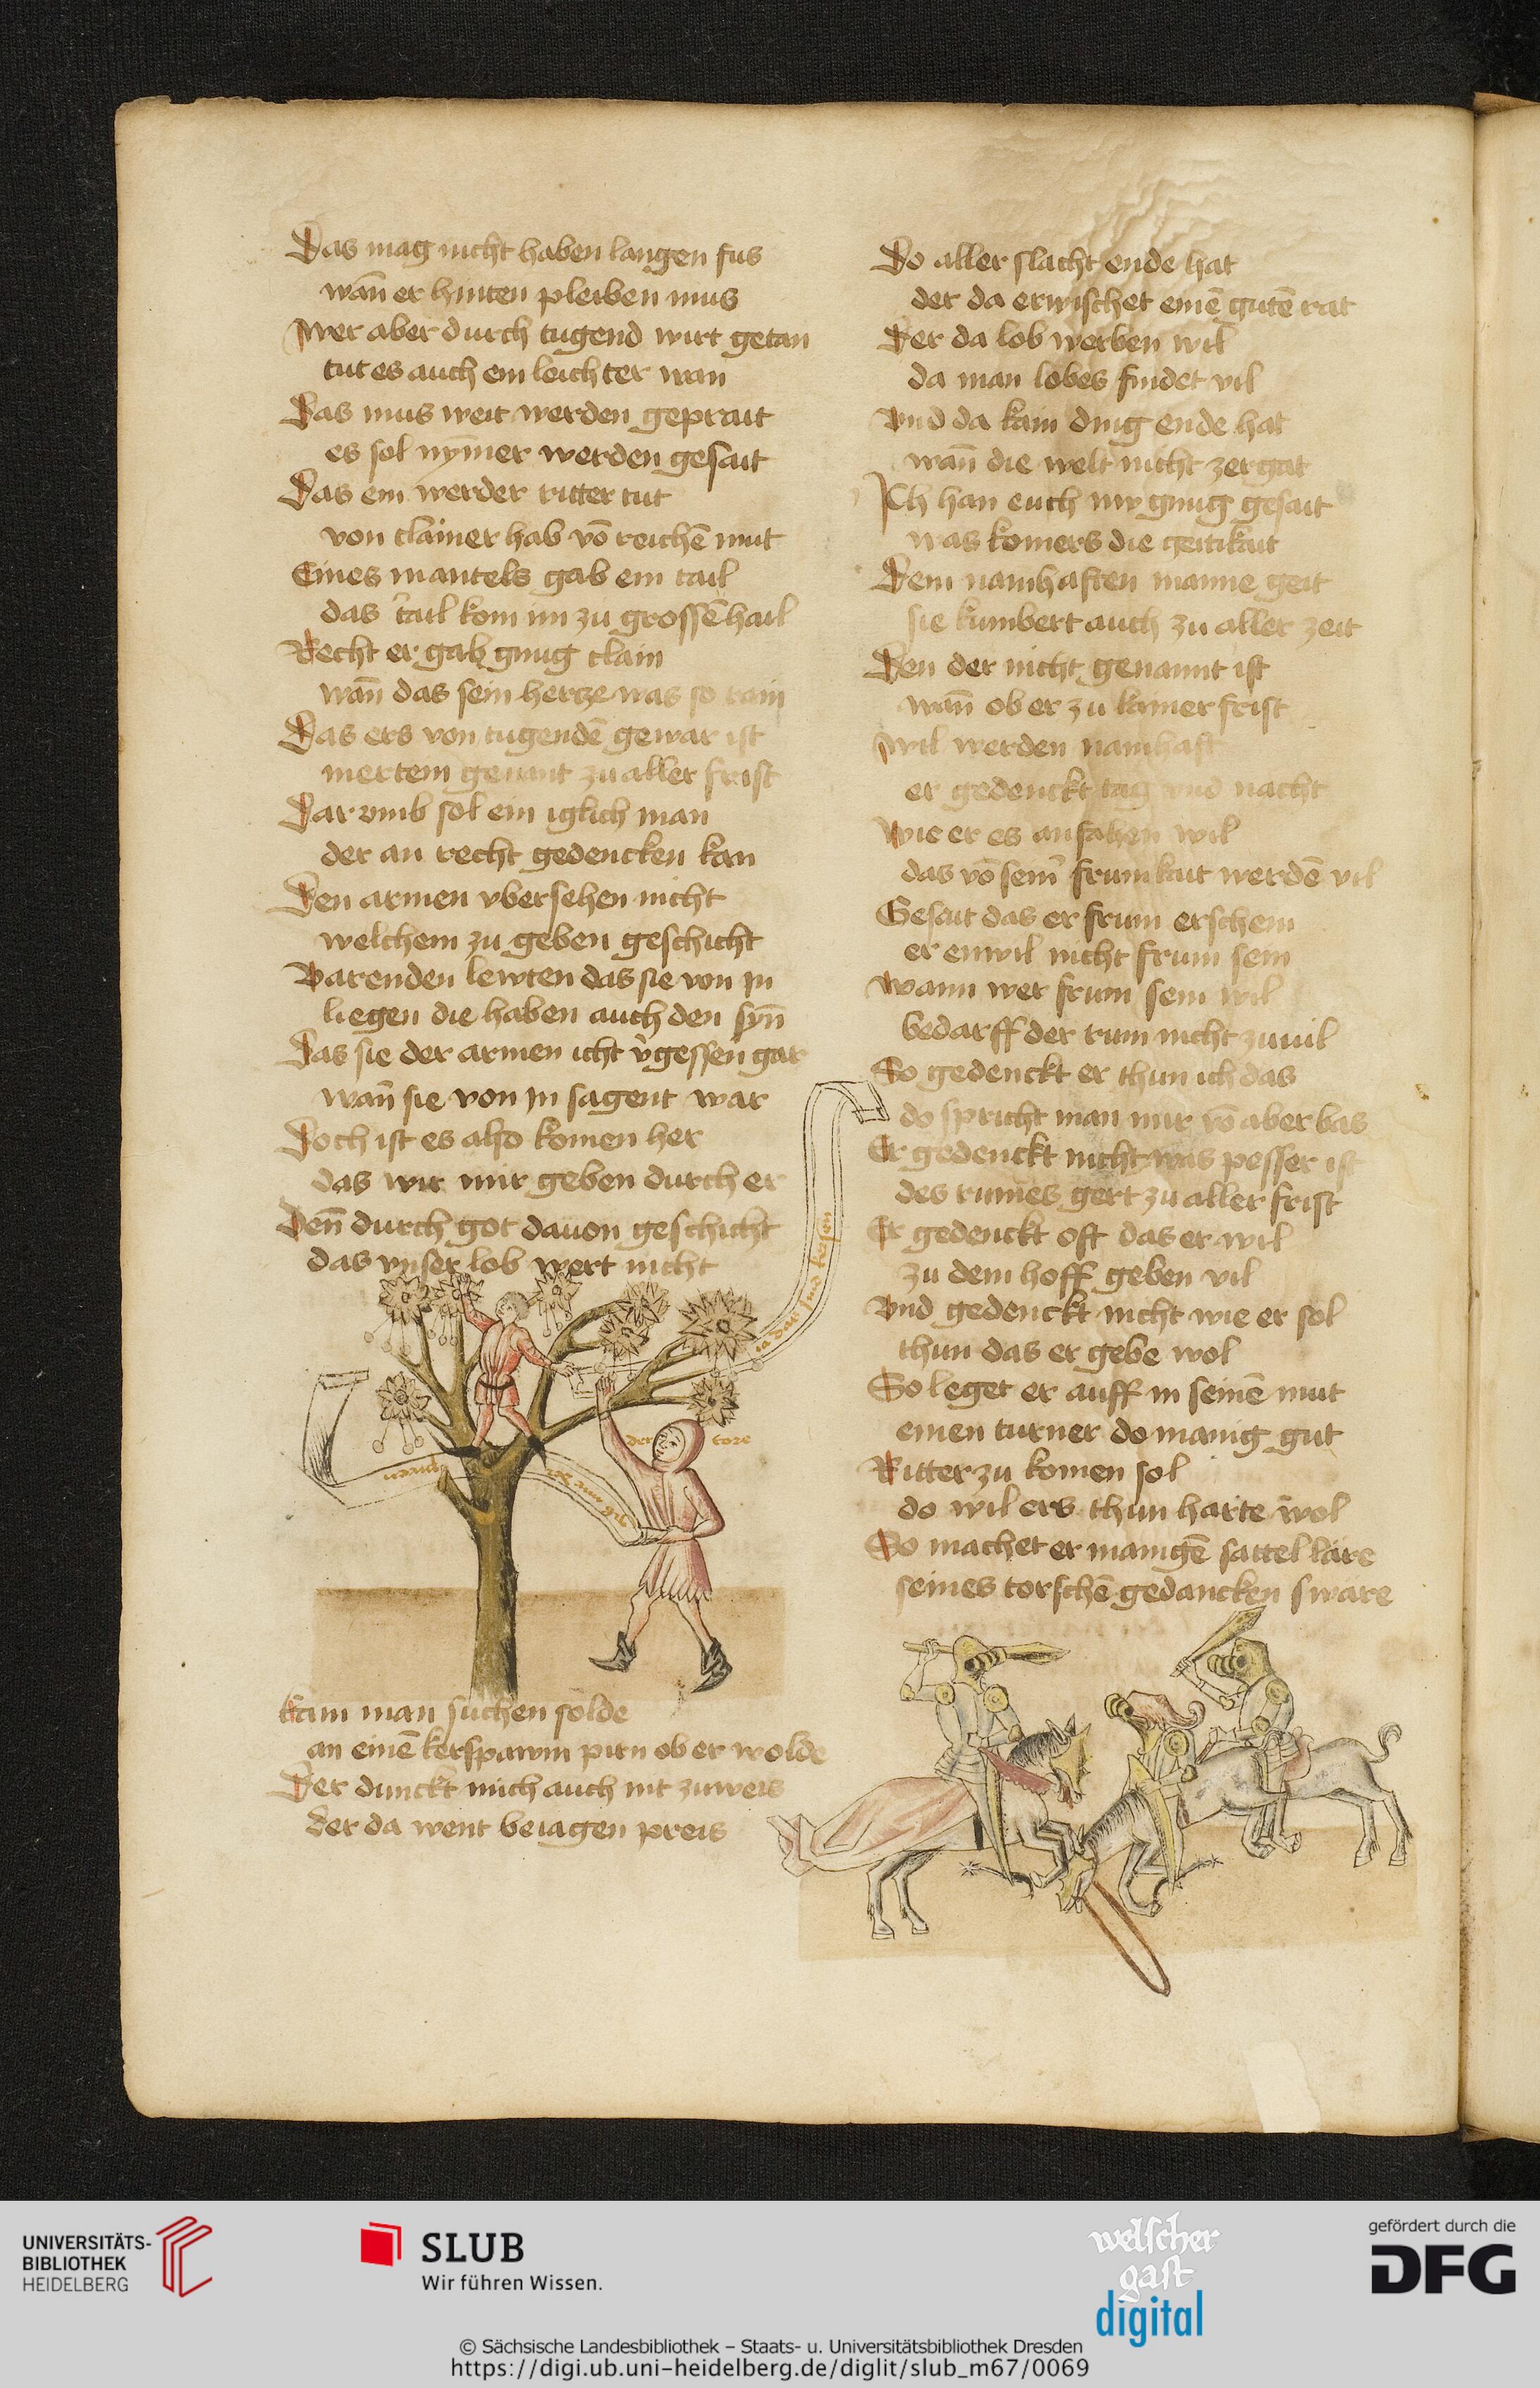 Das mag nicht haben langen fus
wañ er hinten pleiben mus
Wer aber durch tugend wirt getan
tut es auch ein leichter man
Das mus weit werden geprait
es sol nym̄er werden gesait
Das ein werder ritter tut
von clainer hab vō reichē mut
Eines mantels gab ein tail
das tail kom im zu grossē hail
Recht er gab gnug clain
wañ das sein hertze was so rain
Das ers von tugendē gewar ist
mertein genant zu aller frist
Dar vmb sol ein iglich man
der an recht gedencken kan
Den armen vbersehen nicht
welchem zu geben geschicht
Varenden lewten das sie von in
liegen die haben auch den syn̄
Das sie der armen icht v̉gessen gar
wañ sie von in sagent war
Doch ist es also komen her
das wir mir geben durch er
Den̄ durch got dauon geschicht
das vnser lob wert nicht
ia das sind kersen
der tore
Kain man suchen solde
an einē kerspawm pirn ob er wolde
Der dunckt mich auch nit zuweis
der da went beiagen preis
Do aller slacht ende hat
der da erwischet einē gutē rat
Der da lob werben wil
da man lobes findet vil
Vnd da kain ding ende hat
wañ die welt nicht zergat
Ich han euch nw gnug gesait
was komers die geitikait
Dem namhaften manne geit
sie kumbert auch zu aller zeit
Den der nicht genannt ist
wañ ob er zu kainer frist
Wil werden namhaft
er gedenckt tag vnd nacht
Wie er es anfahen wil
das vō seim̉ frumkait werdē vil
Gesait das er frum erschein
er enwil nicht frum sein
Wann wer frum sein wil
bedarff der rum nicht zuuil
So gedenckt er thun ich das
do spricht man mir vō aber bas
Er gedenckt nicht was pesser ist
des rumes gert zu aller frist
Er gedenckt oft das er wil
zu dem hoff geben vil
Vnd gedenckt nicht wie er sol
thun das er gebe wol
So leget er auff in seinē mut
einen turner do manig gut
Ritter zu komen sol
do wil ers thun harte wol
So machet er manigē sattel läre
seines torschē gedancken swäre
UNIVERSITÄTS-
BIBLIOTHEK
HEIDELBERG
SLUB
Wir führen Wissen.
welscher
gast
digital
gefördert durch die
DFG
© Sächsische Landesbibliothek – Staats- u. Universitätsbibliothek Dresden
https://digi.ub.uni-heidelberg.de/diglit/slub_m67/0069